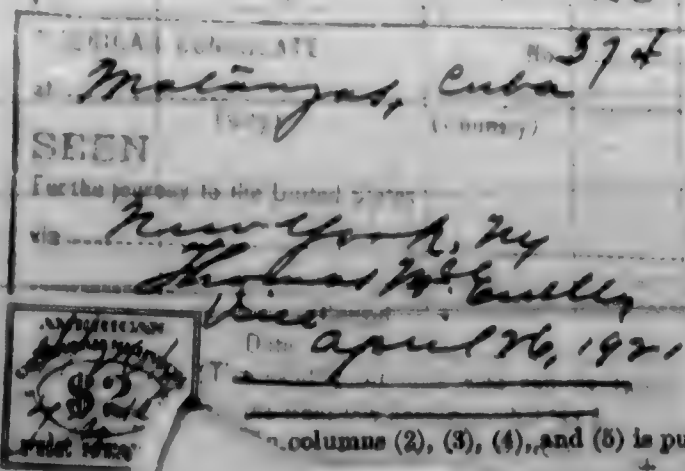 AMERICAN CONSULATE No. 374
at Matanzas, Cuba
(City) (Country)
SEEN
For the journey to the United States
via New York, NY
Thomas McEnelly
Vice
Date April 26, 1921
AMERICAN
$2
FEE STAMP
columns (2), (3), (4), and (5) is pu